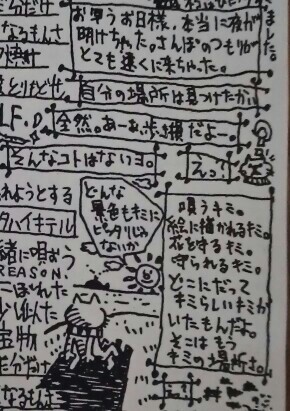 ました。
お早うお日様、本当に夜が
明けちゃった。さんぽのつもりが
とても遠くに来ちゃった。
自分の場所は見つけたかい
全然。あーあ、歩き損だよー。
そんなコトはないヨ。
えっ？
どんな
景色もキミに
ピッタリじゃ
ないか
唄うキミ。
絵に描かれるキミ。
恋をするキミ。
守られるキミ。
どこにだって
キミらしいキミが
いたもんだよ。
そこはもう
キミの場所さ。
なるもんさ
LF.
れようとする
タハイキテル
緒に唄おう
REASON
こぼれた
少し似た
宝物
なるもんさ